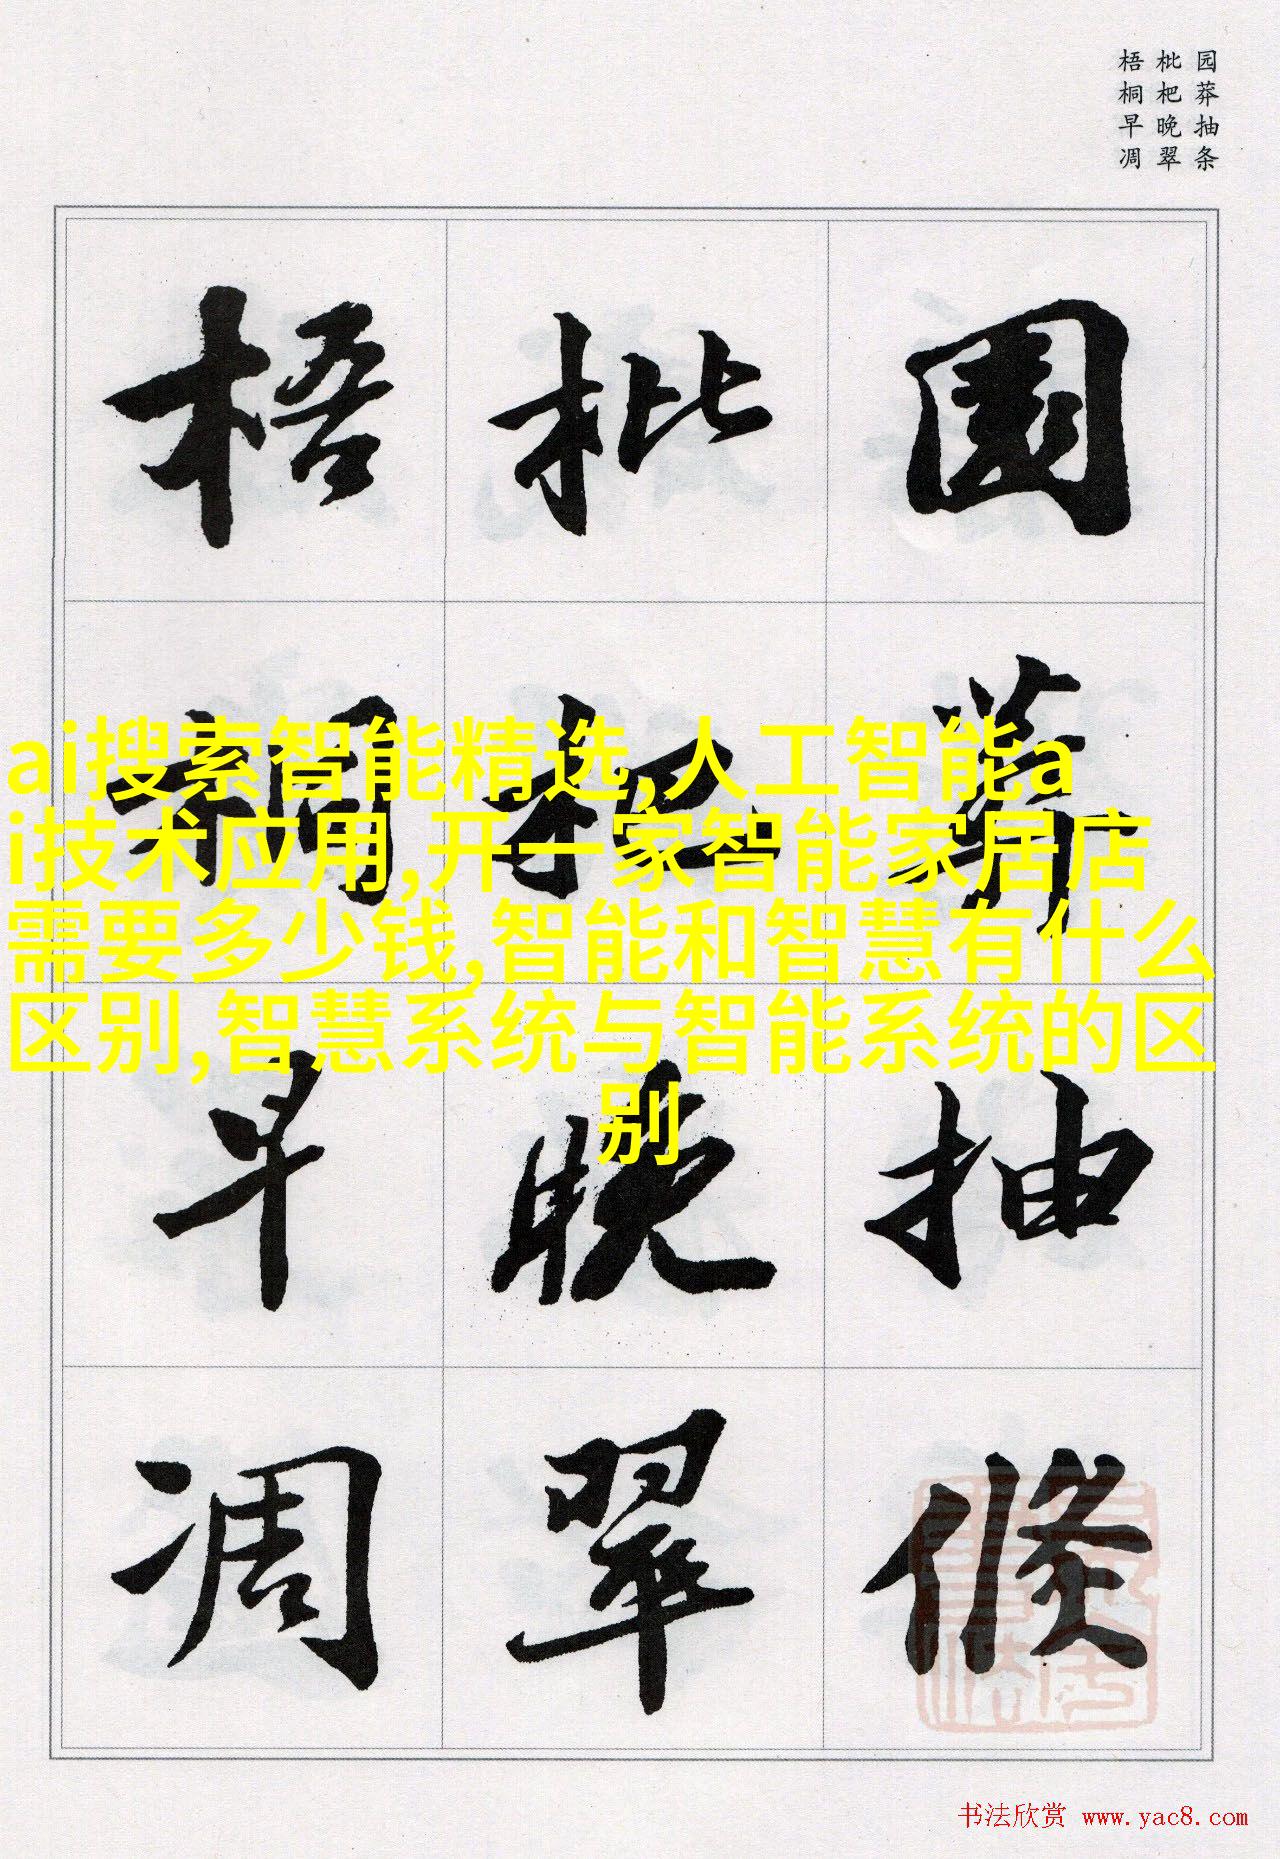 园莽抽条
枇杷晚翠
梧桐早凋
園莽抽條
枇杷晚翠
梧桐早凋
ai搜索智能精选,人工智能a
i技术应用,开一家智能家居店
需要多少钱,智能和智慧有什么
区别,智慧系统与智能系统的区
别
书法欣赏 www.yac8.com